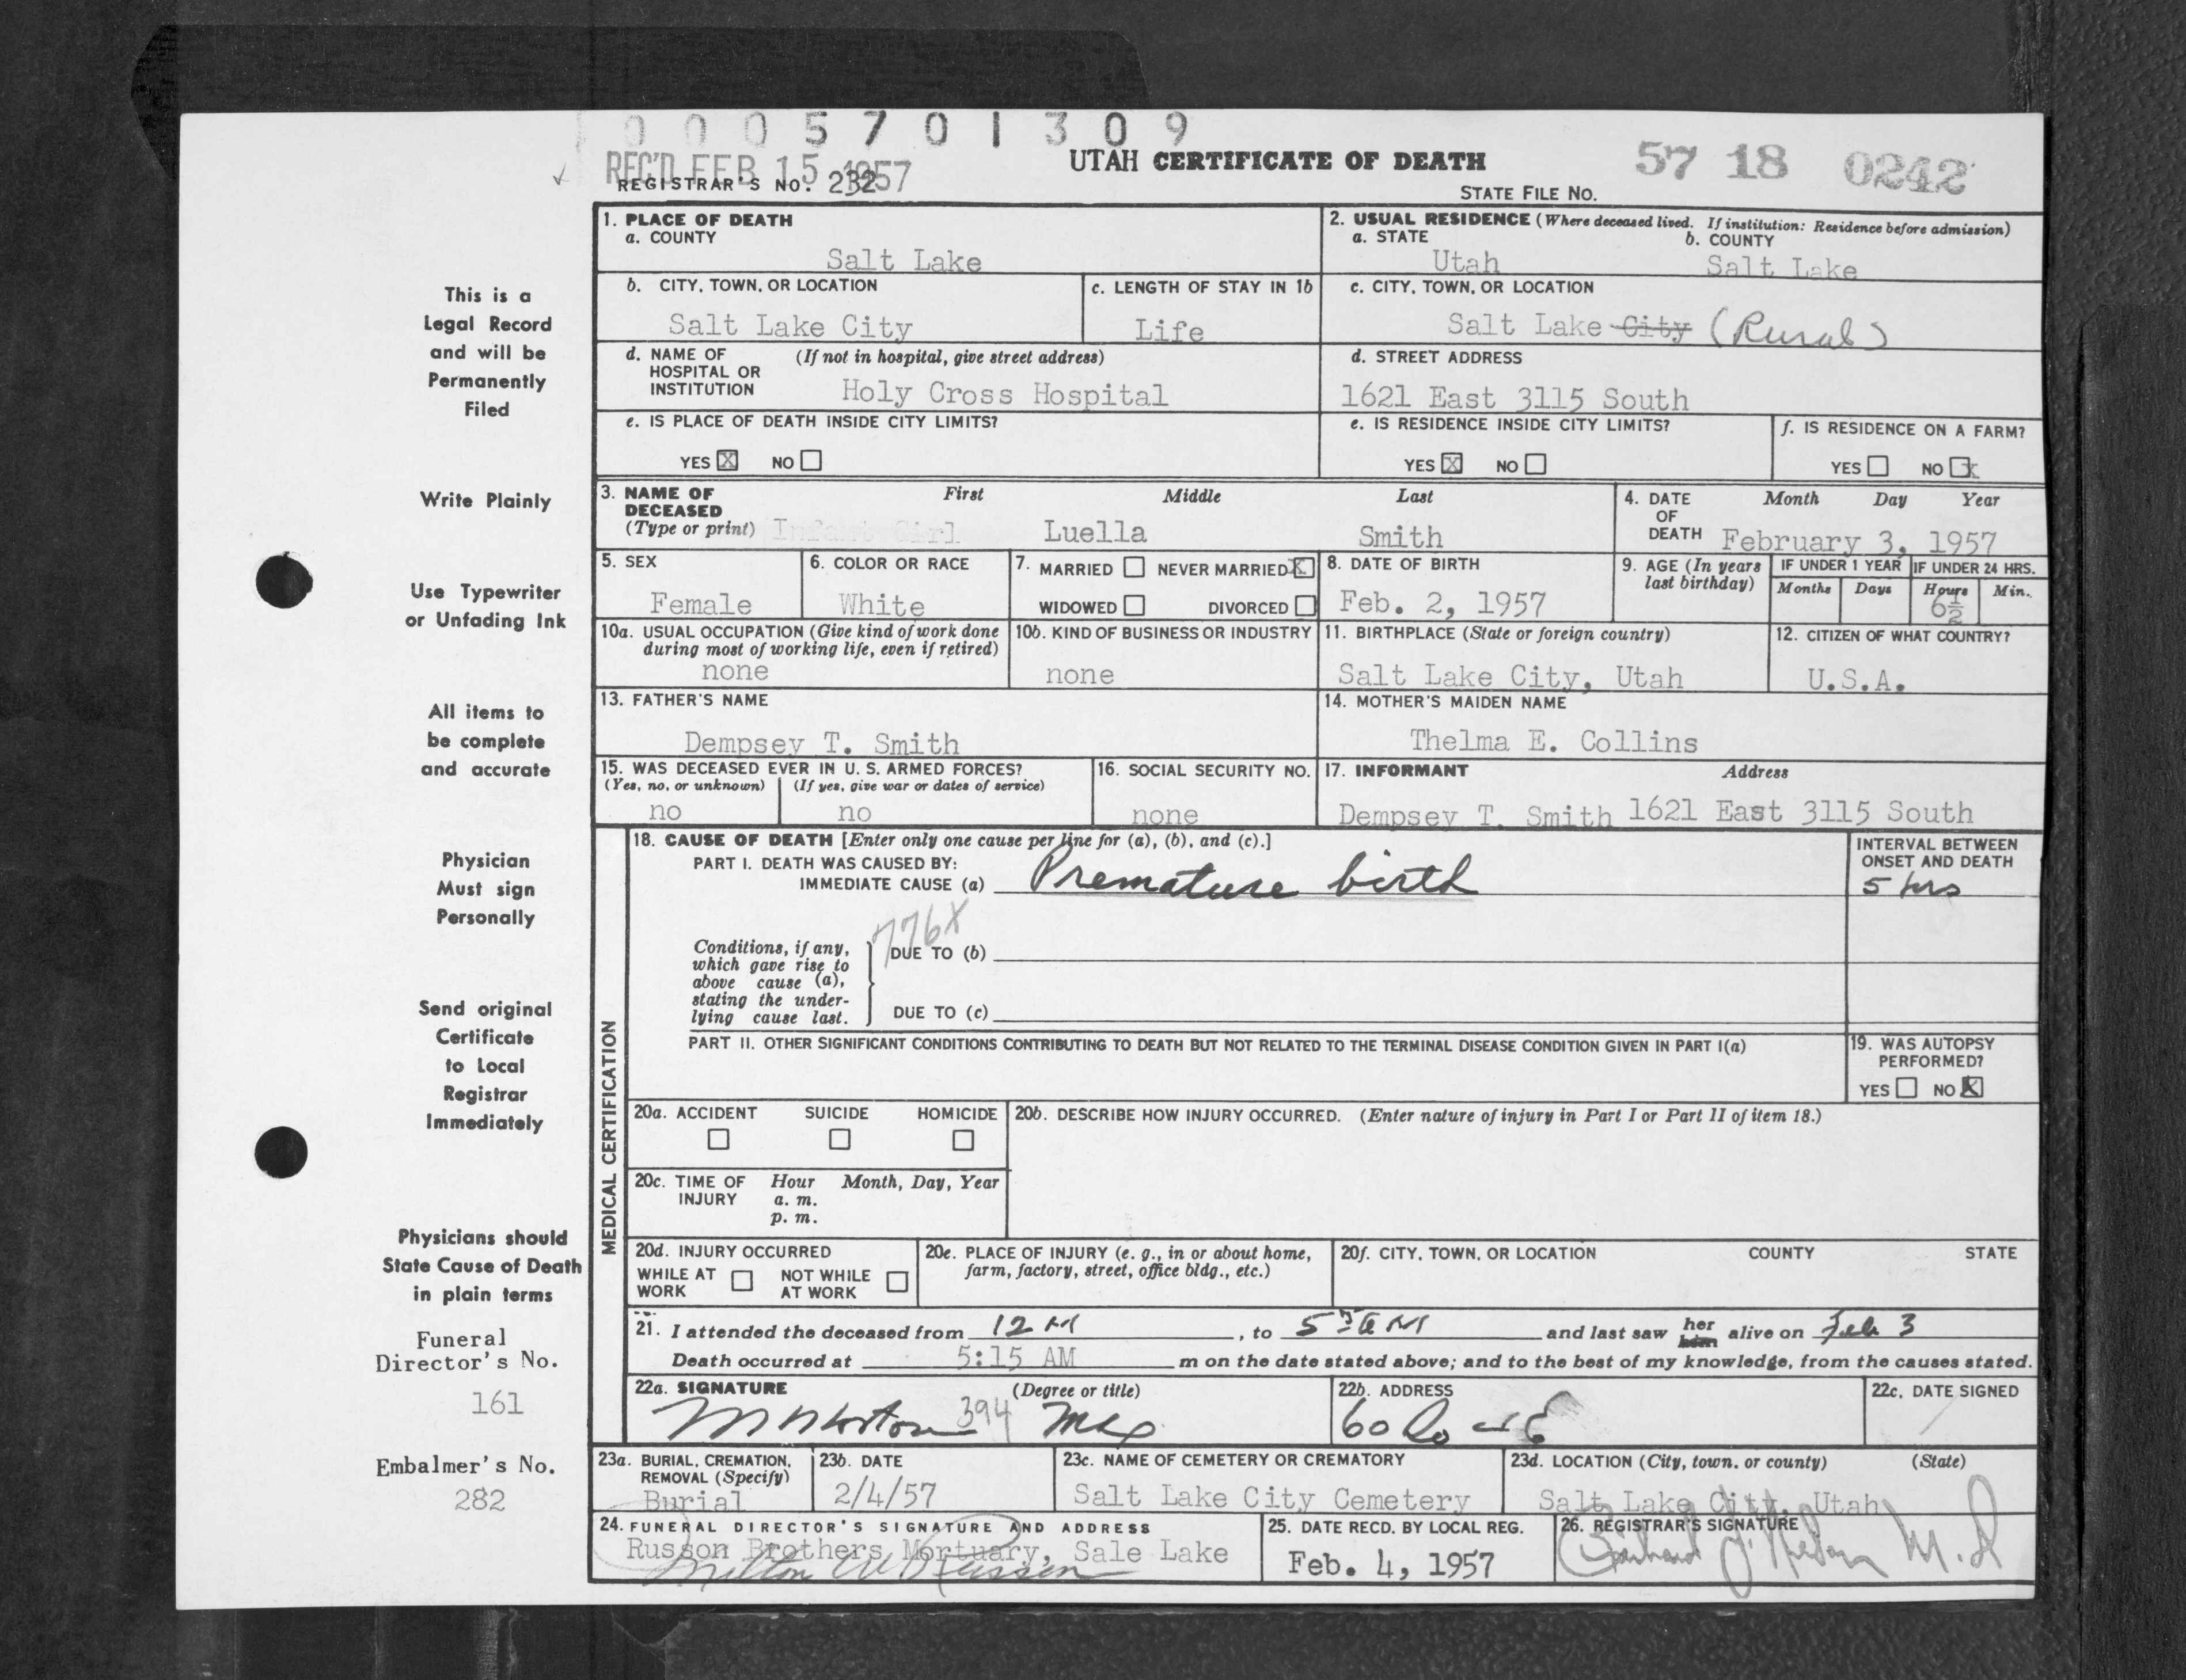 0005701309
REC'D FEB 15 1957
REGISTRAR'S NO. 232
UTAH CERTIFICATE OF DEATH
STATE FILE NO. 57 18 0242
This is a
Legal Record
and will be
Permanently
Filed
Write Plainly
Use Typewriter
or Unfading Ink
All items to
be complete
and accurate
Physician
Must sign
Personally
Send original
Certificate
to Local
Registrar
Immediately
Physicians should
State Cause of Death
in plain terms
Funeral
Director's No.
161
Embalmer's No.
282
1. PLACE OF DEATH
a. COUNTY
Salt Lake
2. USUAL RESIDENCE (Where deceased lived. If institution: Residence before admission)
a. STATE
Utah
b. COUNTY
Salt Lake
b. CITY, TOWN, OR LOCATION
Salt Lake City
c. LENGTH OF STAY IN 1b
Life
c. CITY, TOWN, OR LOCATION
Salt Lake City (Rural)
d. NAME OF HOSPITAL OR INSTITUTION
(If not in hospital, give street address)
Holy Cross Hospital
d. STREET ADDRESS
1621 East 3115 South
e. IS PLACE OF DEATH INSIDE CITY LIMITS?
YES X NO
e. IS RESIDENCE INSIDE CITY LIMITS?
YES X NO
f. IS RESIDENCE ON A FARM?
YES NO X
3. NAME OF DECEASED (Type or print)
First Middle Last
Infant Girl Luella Smith
4. DATE OF DEATH
Month Day Year
February 3, 1957
5. SEX
Female
6. COLOR OR RACE
White
7. MARRIED NEVER MARRIED X
WIDOWED DIVORCED
8. DATE OF BIRTH
Feb. 2, 1957
9. AGE (In years last birthday)
IF UNDER 1 YEAR
Months Days
IF UNDER 24 HRS.
Hours Min.
6½
10a. USUAL OCCUPATION (Give kind of work done during most of working life, even if retired)
none
10b. KIND OF BUSINESS OR INDUSTRY
none
11. BIRTHPLACE (State or foreign country)
Salt Lake City, Utah
12. CITIZEN OF WHAT COUNTRY?
U.S.A.
13. FATHER'S NAME
Dempsey T. Smith
14. MOTHER'S MAIDEN NAME
Thelma E. Collins
15. WAS DECEASED EVER IN U. S. ARMED FORCES?
(Yes, no, or unknown) (If yes, give war or dates of service)
no no
16. SOCIAL SECURITY NO.
none
17. INFORMANT Address
Dempsey T. Smith 1621 East 3115 South
MEDICAL CERTIFICATION
18. CAUSE OF DEATH [Enter only one cause per line for (a), (b), and (c).]
PART I. DEATH WAS CAUSED BY:
IMMEDIATE CAUSE (a) Premature birth
INTERVAL BETWEEN ONSET AND DEATH
5 hrs
776X
Conditions, if any, which gave rise to above cause (a), stating the underlying cause last.
DUE TO (b)
DUE TO (c)
PART II. OTHER SIGNIFICANT CONDITIONS CONTRIBUTING TO DEATH BUT NOT RELATED TO THE TERMINAL DISEASE CONDITION GIVEN IN PART I(a)
19. WAS AUTOPSY PERFORMED?
YES NO X
20a. ACCIDENT SUICIDE HOMICIDE
20b. DESCRIBE HOW INJURY OCCURRED. (Enter nature of injury in Part I or Part II of item 18.)
20c. TIME OF INJURY
Hour Month, Day, Year
a. m.
p. m.
20d. INJURY OCCURRED
WHILE AT WORK NOT WHILE AT WORK
20e. PLACE OF INJURY (e. g., in or about home, farm, factory, street, office bldg., etc.)
20f. CITY, TOWN, OR LOCATION COUNTY STATE
21. I attended the deceased from 12 M, to 5 AM and last saw her him alive on Feb 3
Death occurred at 5:15 AM m on the date stated above; and to the best of my knowledge, from the causes stated.
22a. SIGNATURE (Degree or title)
394
22b. ADDRESS
60
22c. DATE SIGNED
23a. BURIAL, CREMATION, REMOVAL (Specify)
Burial
23b. DATE
2/4/57
23c. NAME OF CEMETERY OR CREMATORY
Salt Lake City Cemetery
23d. LOCATION (City, town, or county) (State)
Salt Lake City, Utah
24. FUNERAL DIRECTOR'S SIGNATURE AND ADDRESS
Russon Brothers Mortuary, Sale Lake
Milton W Russon
25. DATE RECD. BY LOCAL REG.
Feb. 4, 1957
26. REGISTRAR'S SIGNATURE
M.D